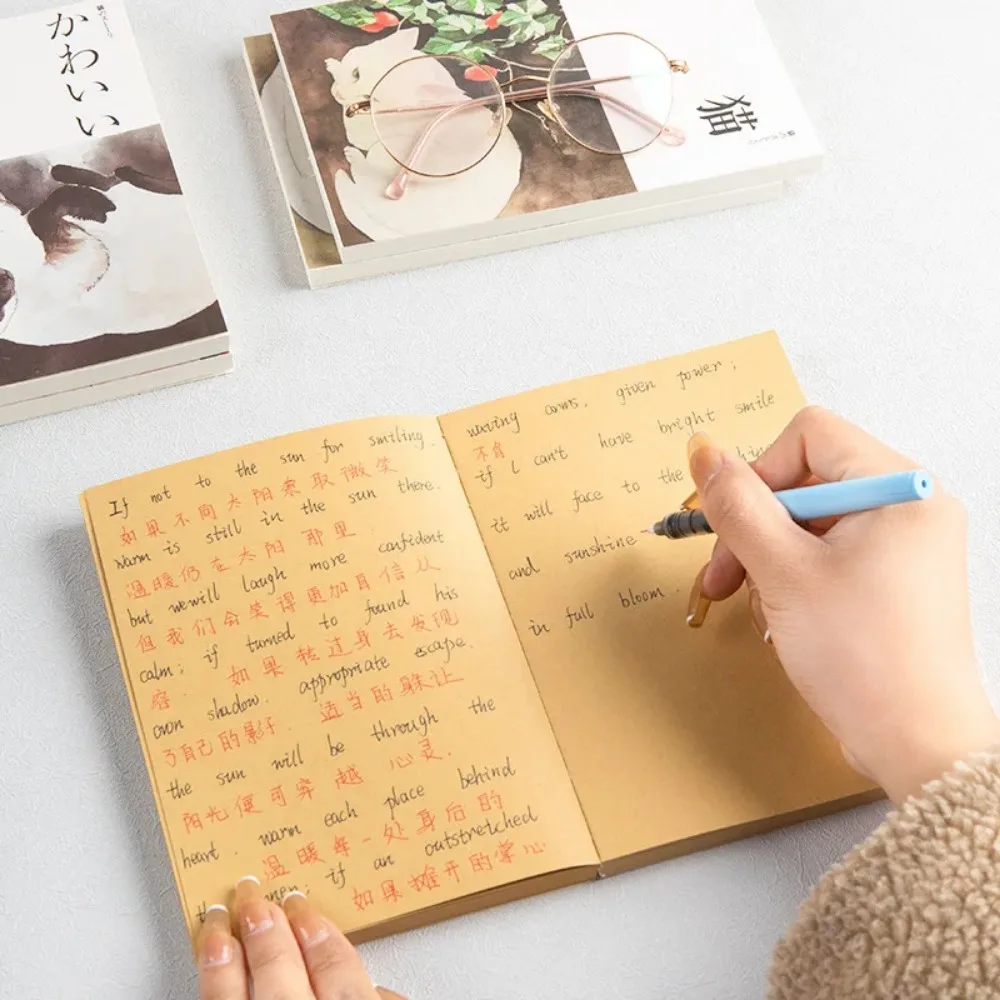 かわいい
猫
If not to the sun for smiling.
如果不向太阳索取微笑
warm is still in the sun there.
温暖仍在太阳那里
but wewill laugh more confident
但我们会笑得更加自信从
calm; if turned to found his
容 如果转过身去发现
own shadow. appropriate escape.
了自己的影子. 适当的躲让
the sun will be through the
阳光便可穿越心灵.
heart. warm each place behind
温暖每一处身后的
if an outstretched
如果摊开的掌心
waving arms. given power;
不肯
if I can't have bright smile
it will face to the
and sunshine
in full bloom.